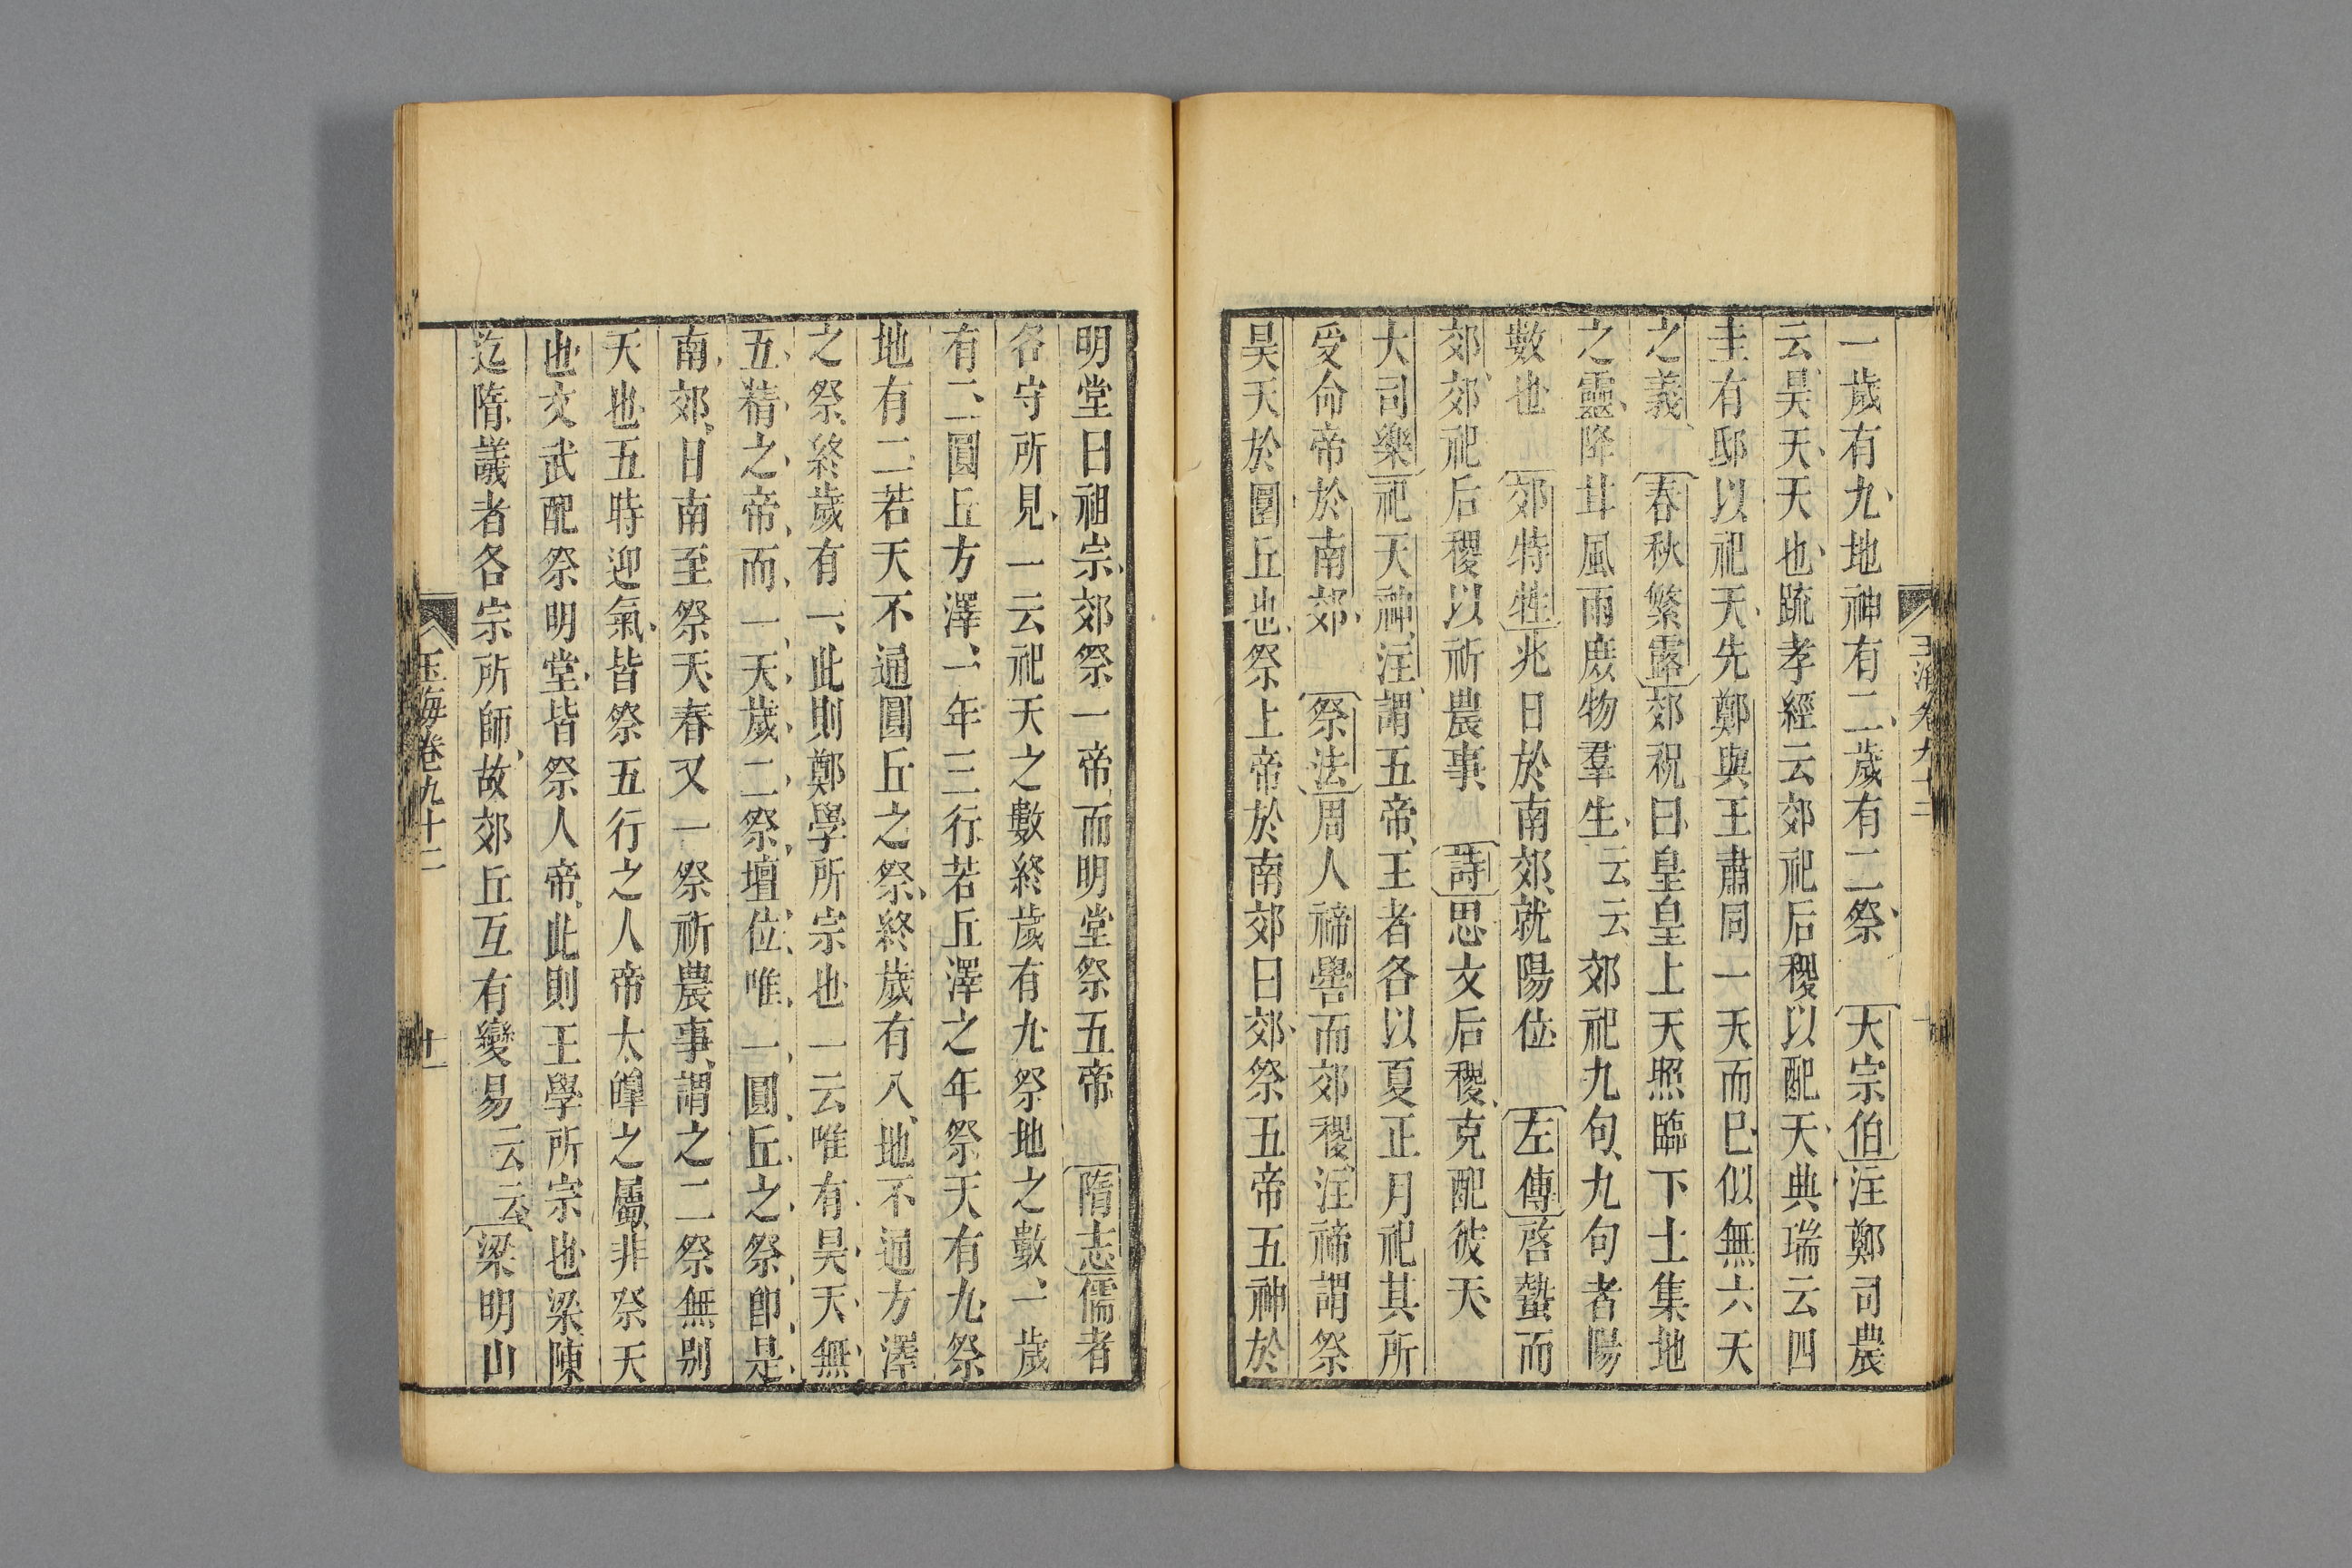 一歲有九地神有二歲有二祭 大宗伯注鄭司農
云昊天天也疏孝經云郊祀后稷以配天典瑞云四
圭有邸以祀天先鄭與王肅同一天而巳似無六天
之義 春秋繁露郊祝曰皇皇上天照臨下土集地
之靈降甘風雨庶物羣生云云郊祀九句九句者陽
數也 郊特牲兆日於南郊就陽位 左傳啓蟄而
郊郊祀后稷以祈農事 詩思文后稷克配彼天
大司樂祀天神注謂五帝王者各以夏正月祀其所
受命帝於南郊 祭法周人禘嚳而郊稷注禘謂祭
昊天於圜丘也祭上帝於南郊曰郊祭五帝五神於
明堂曰祖宗郊祭一帝而明堂祭五帝 隋志儒者
各守所見一云祀天之數終歲有九祭地之數一歲
有二圓丘方澤一年三行若丘澤之年祭天有九祭
地有二若天不通圓丘之祭終歲有八地不通方澤
之祭終歲有一此則鄭學所宗也一云唯有昊天無
五精之帝而一天歲二祭壇位唯一圓丘之祭卽是
南郊日南至祭天春又一祭祈農事謂之二祭無別
天也五時迎氣皆祭五行之人帝太皥之屬非祭天
也文武配祭明堂皆祭人帝此則王學所宗也梁陳
迄隋議者各宗所師故郊丘互有變易云云梁明山
玉海卷九十二 十一